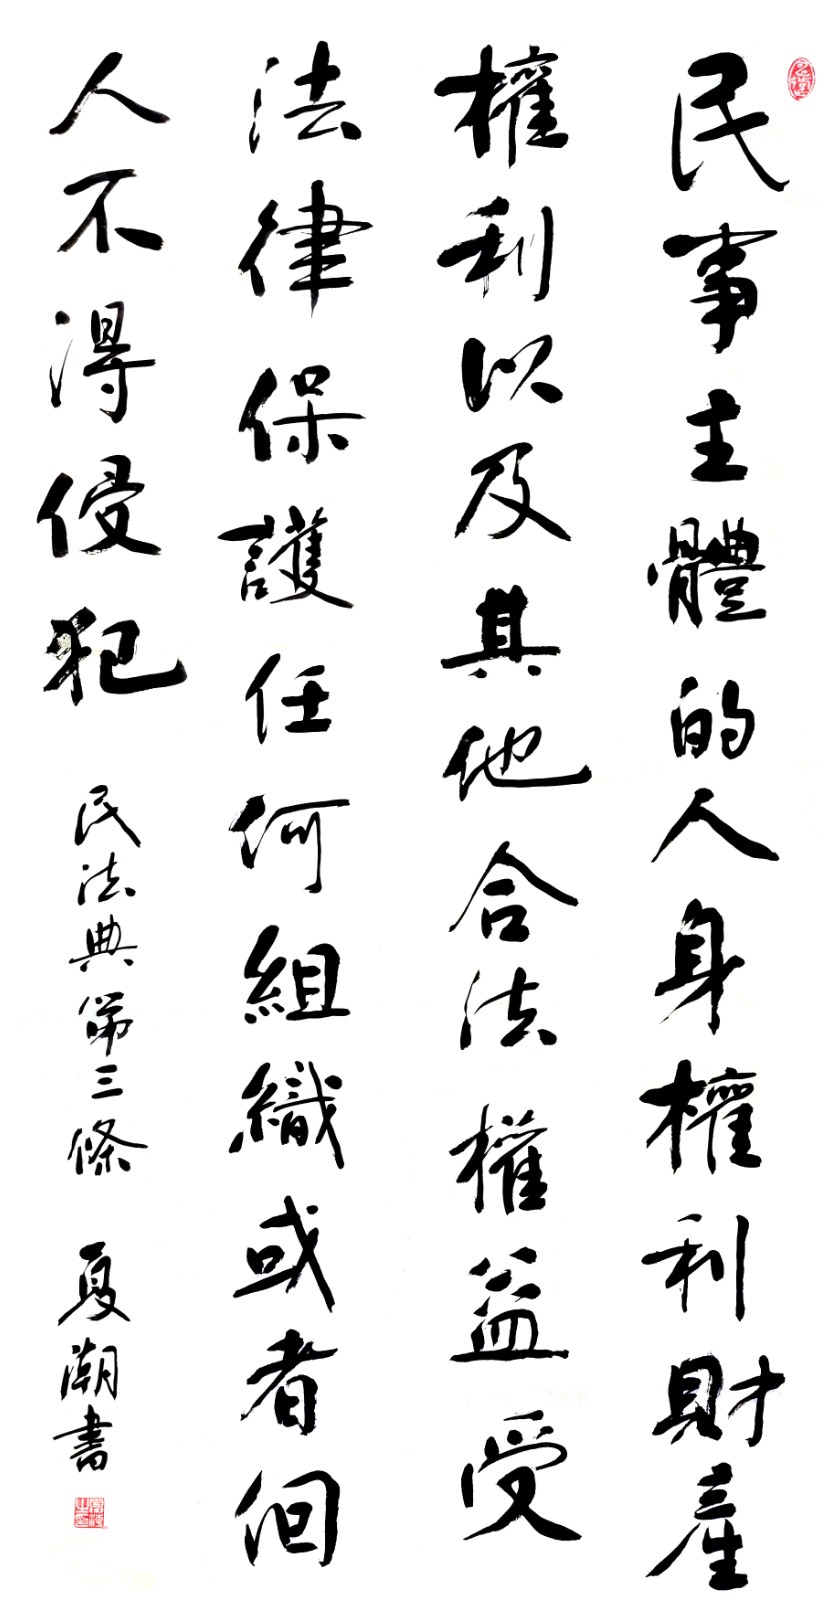 民事主體的人身權利財產
權利以及其他合法權益受
法律保護任何組織或者個
人不得侵犯 民法典第三條 夏潮書